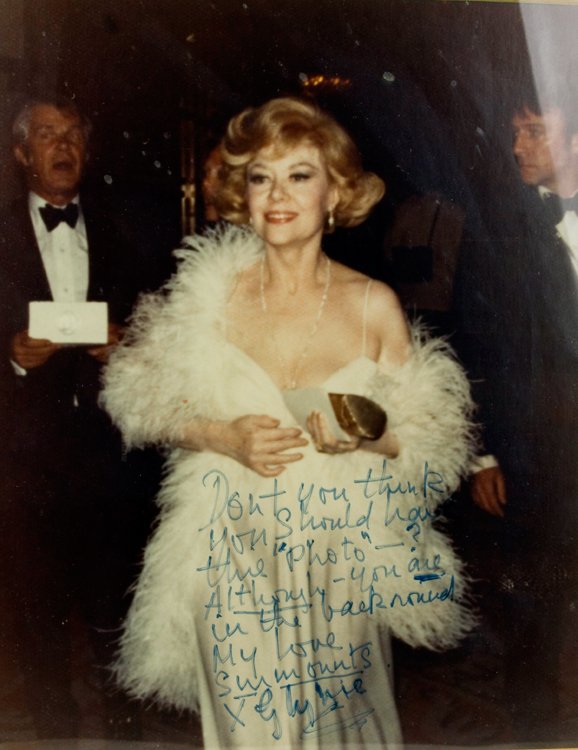 Don't you think
you should have
this "photo" — ?
Although - you are
in the background
My love
X Glynis